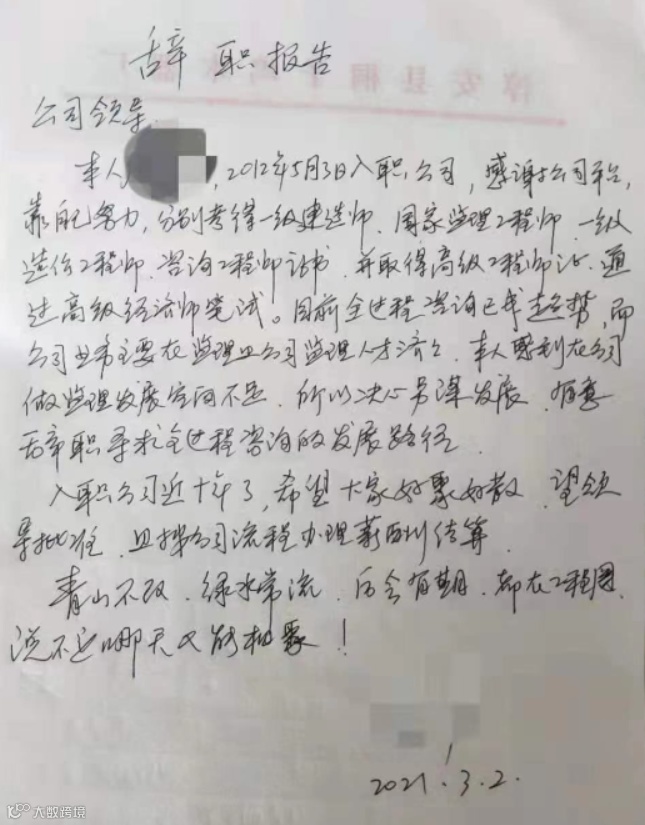 辞职报告
公司领导
本人 , 2012年5月3日入职公司, 感谢公司平台,
靠自己努力, 分别考得一级建造师、国家监理工程师、一级
造价工程师、咨询工程师证书, 并取得高级工程师证、通
过高级经济师笔试。目前全过程咨询已成趋势, 而
公司业务主要在监理且公司监理人才济济、本人感到在公司
做监理发展空间不足、所以决心另谋发展、有意
辞职寻求全过程咨询的发展路径.
入职公司近十年了, 希望大家好聚好散、望领
导批准、且按公司流程办理薪酬结算.
青山不改、绿水常流、后会有期、都在工程圈、
说不定哪天又能相聚!
2021.3.2.
淳安县桐
大数跨境